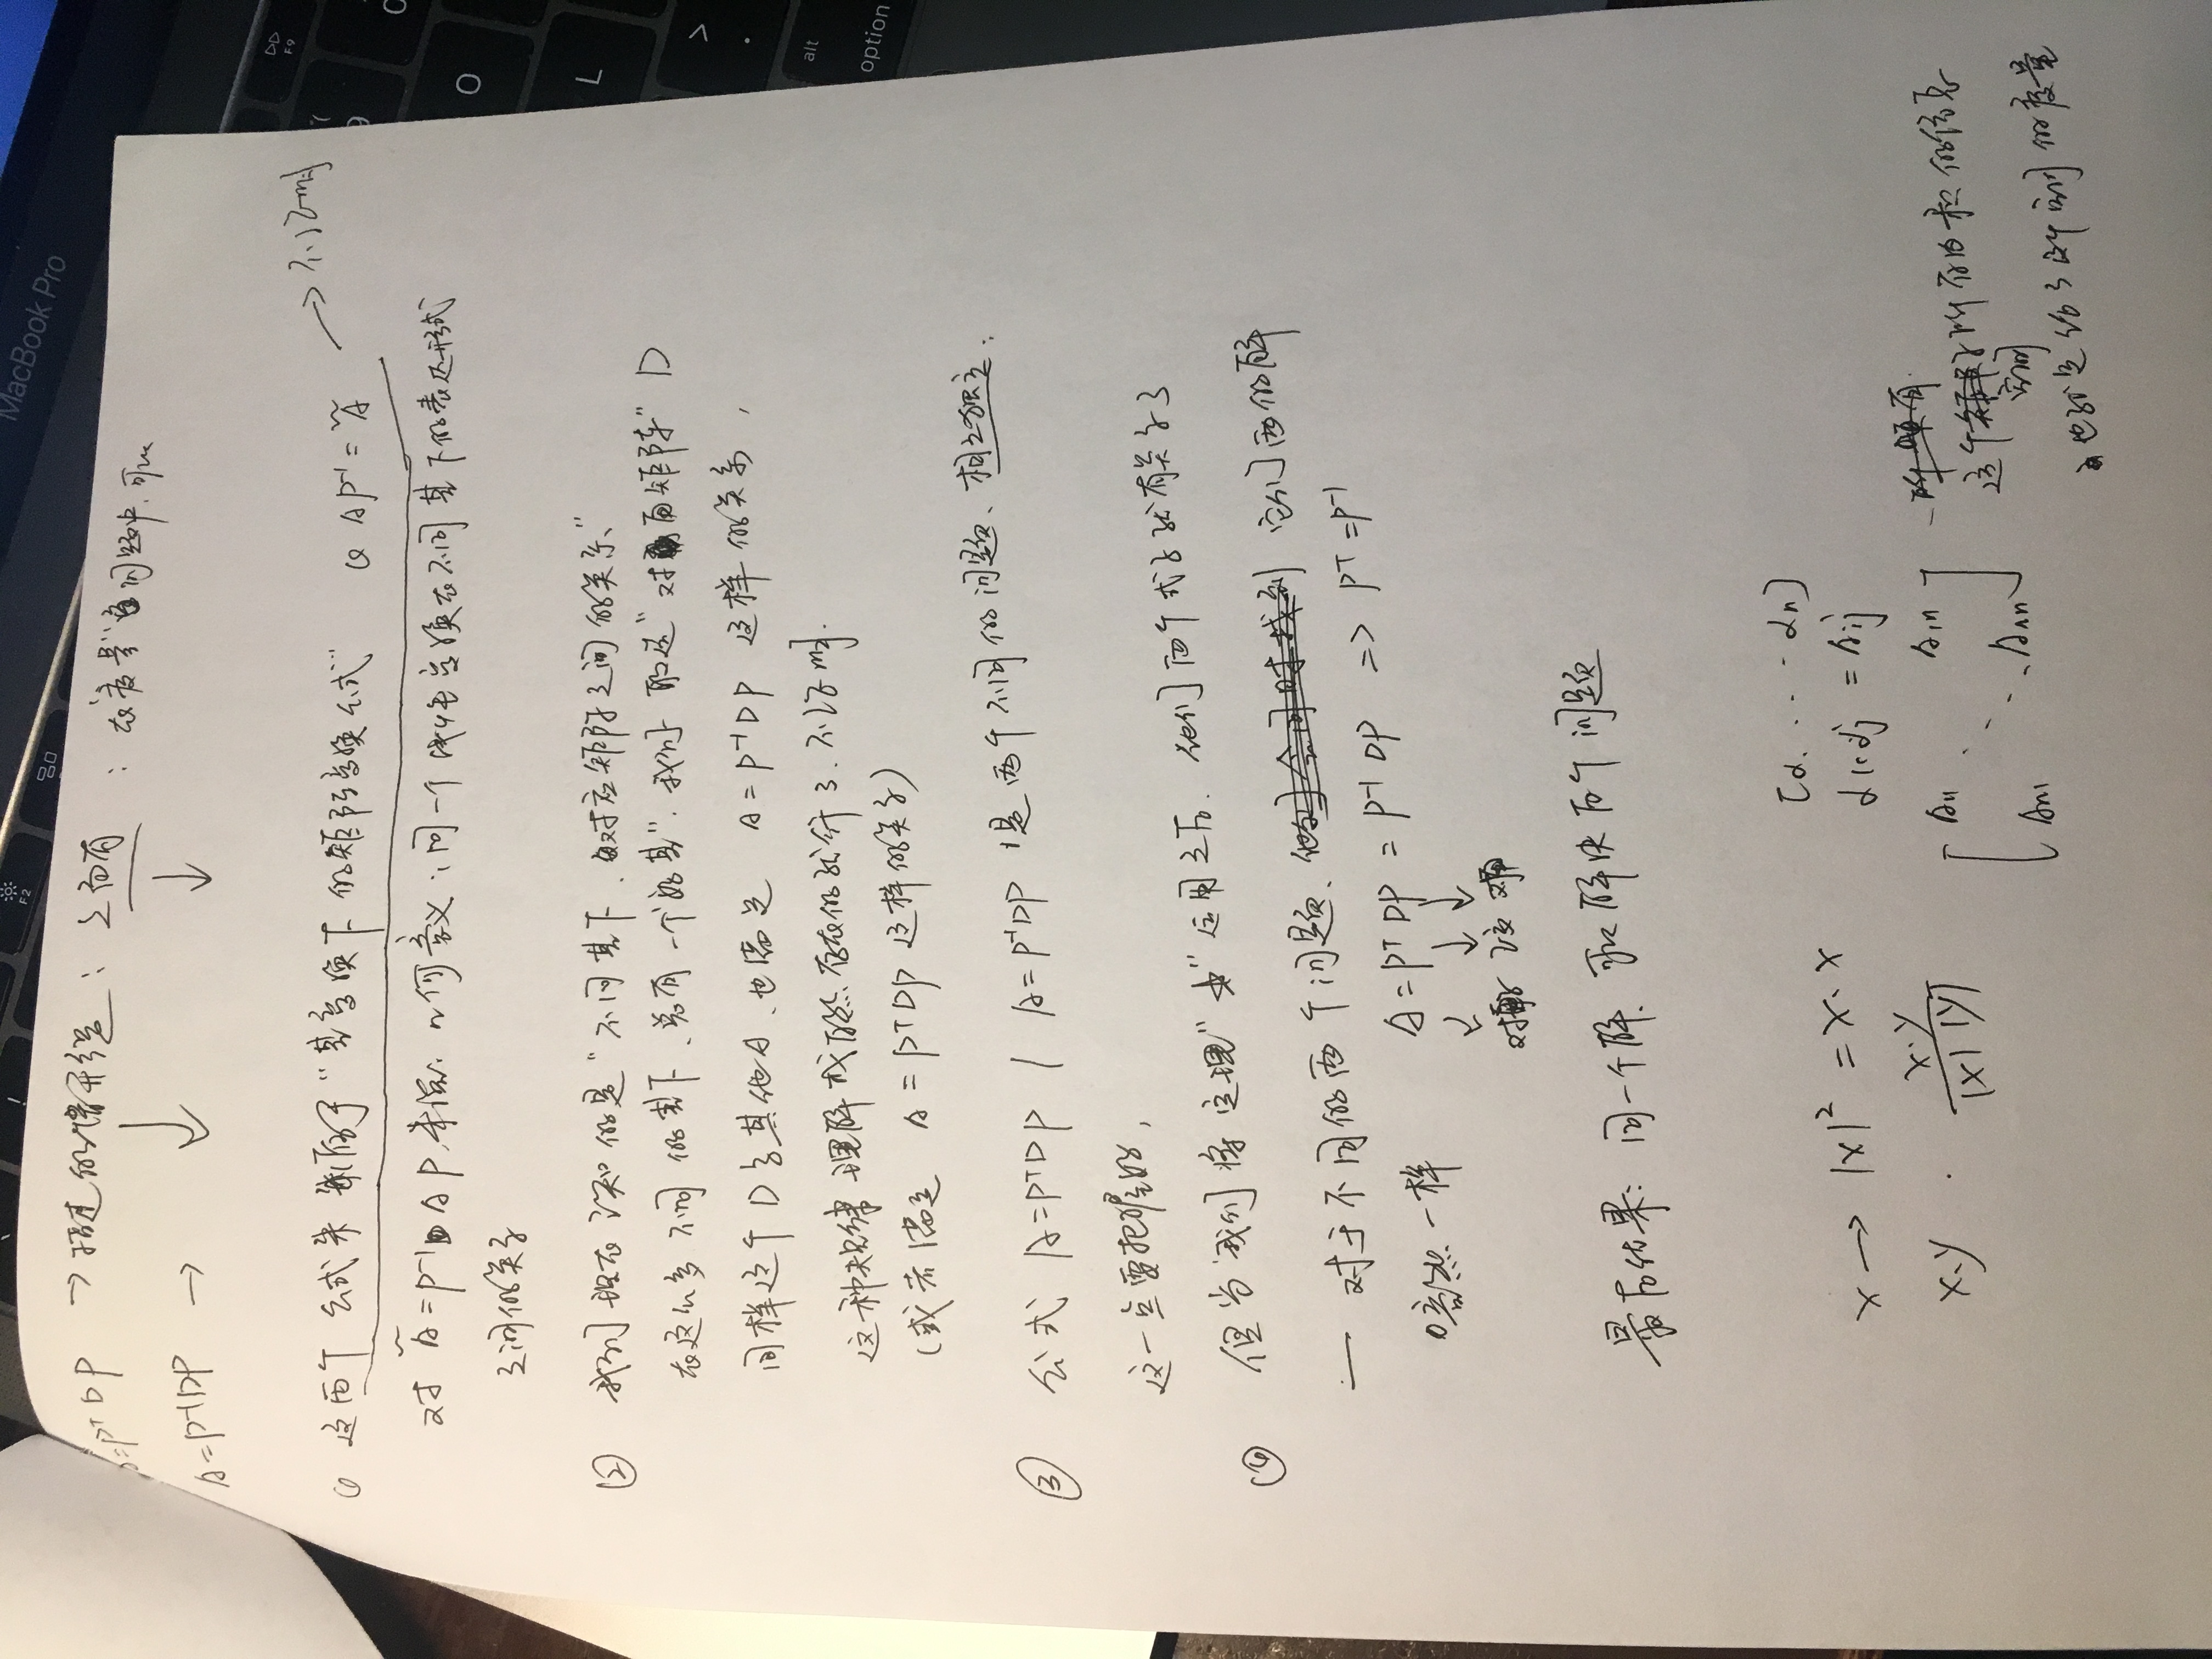 MacBook Pro
F2
A=PᵀDP → 描述的情形是: 二者有 : 在"度量"这个问题中, 可以
A=P⁻¹DP →
F9
① 这两个公式来源于"基变换下的矩阵变换公式" PAP⁻¹=Ã → 不证明
对 Ã=P⁻¹AP 来说, 几何意义: 同一个线性变换在不同基下的表达形式
之间的关系
② 我们现在认知的是"不同基下, 对应矩阵之间的关系"
在这么多不同的基下, 总有一个"好基", 我们取这"对角矩阵" D
同样这个D与其他A, 也满足 A=P⁻¹DP 这样的关系,
这种规律理解成自然存在的就行了, 不证明.
(或者满足 A=PᵀDP 这样的关系)
③ 公式 A=PᵀDP / A=P⁻¹DP 是两个不同的问题, 相互独立.
这一点要把握好,
④ 但当我们将定理"★"运用之后, 他们两个式子就有关系了
— 对于不同的两个问题, 它们两的解
A=PᵀDP=P⁻¹DP => Pᵀ=P⁻¹
竟然一样
对称 正交 对角
最后结果: 同一个解, 可以解决两个问题
x → |x|² = x·x
[α₁ ... αn]
αi·αj = Aij
x·y · x·y / |x||y|
[A11 A1n
An1 Ann]
这个空间所有内积的信息
也就是给了这个空间的度量
O
L
>
.
alt
option